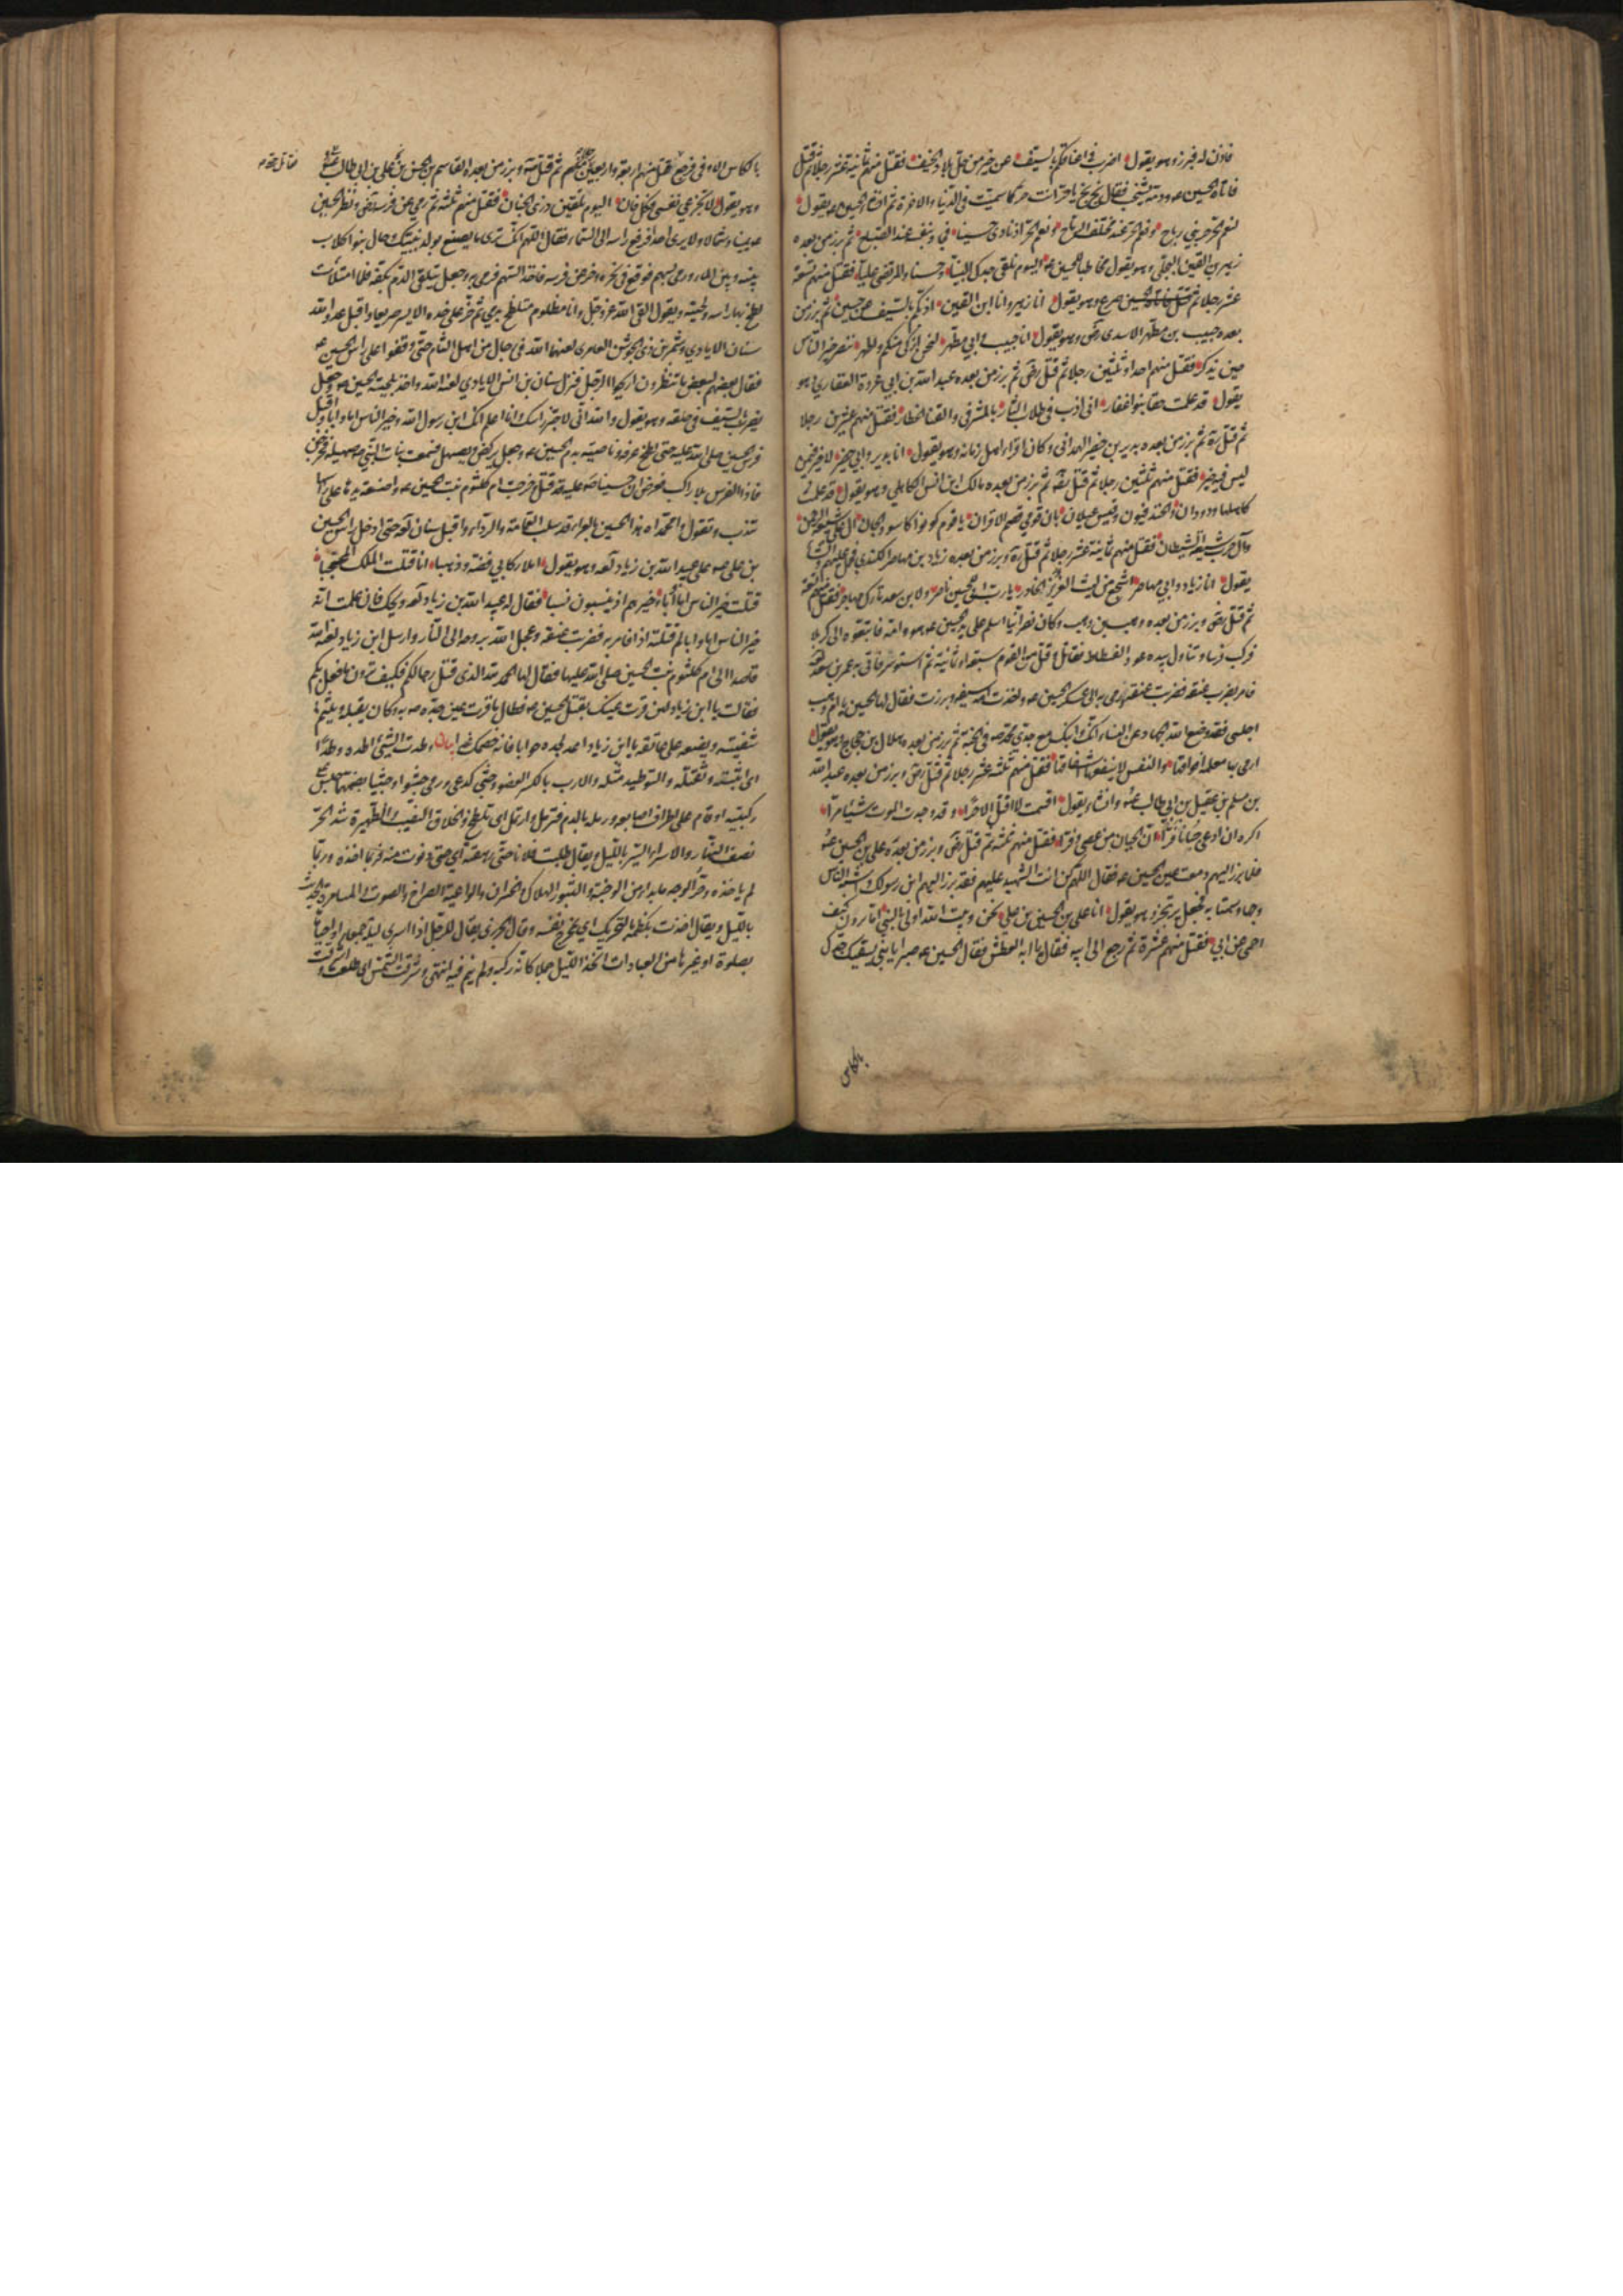 فاذن له فبرز وهو يقول اضرب في اعناقكم بالسيف عن خير من حل بلاد الخيف فقتل منهم ثمانية عشر رجلا ثم قتل
فاتاه الحسين ع ودمه يشخب فقال بخ بخ يا حر انت حر كما سميت في الدنيا والاخرة ثم انشا الحسين ع يقول
لنعم الحر حر بني رياح ونعم الحر عند مختلف الرماح ونعم الحر اذ نادى حسينا فجاد بنفسه عند الصباح ثم برز من بعده
زهير بن القين البجلي وهو يقول مخاطبا للحسين ع اليوم نلقى جدك النبيا وحسنا والمرتضى عليا فقتل منهم تسعة
عشر رجلا ثم صرع وهو يقول انا زهير وانا ابن القين اذبكم بالسيف عن حسين ثم برز من
بعده حبيب بن مظهر الاسدي رض وهو يقول انا حبيب وابي مظهر لنحن ازكى منكم واطهر ننصر خير الناس
حين يذكر فقتل منهم احدا وثلثين رجلا ثم قتل رض ثم برز من بعده عبد الله بن ابي عروة الغفاري وهو
يقول قد علمت حقا بنو غفار اني اذب في طلاب الثار بالمشرفي والقنا الخطار فقتل منهم عشرين رجلا
ثم قتل ره ثم برز من بعده بدير بن حفير الهمداني وكان اقرا اهل زمانه وهو يقول انا بدير وابي حفير لا خير فيمن
ليس فيه خير فقتل منهم ثلثين رجلا ثم قتل ره ثم برز من بعده مالك ابن انس الكاهلي وهو يقول قد علمت
كاهلها ودودان والخندفيون وقيس عيلان بان قومي قصم الاقران يا قوم كونوا كاسود الجان ال علي شيعة الرحمن
وآل حرب شيعة الشيطان فقتل منهم ثمانية عشر رجلا ثم قتل ره وبرز من بعده زياد بن مهاصر الكندي فحمل عليهم وانشا
يقول انا زياد وابي مهاصر اشجع من ليث العزيز الخادر يا رب اني للحسين ناصر ولابن سعد تارك مهاجر فقتل منهم تسعة
ثم قتل رض وبرز من بعده وهب بن وهب وكان نصرانيا اسلم على يد الحسين ع هو وامه فاتبعوه الى كربلا
فركب فرسا وتناول بيده عود الفسطاط فقاتل وقتل من القوم سبعة او ثمانية ثم استوسر فاتي به عمر بن سعد لعنه الله
فامر بضرب عنقه فضربت عنقه ورمي به الى عسكر الحسين ع واخذت امه سيفه وبرزت فقال لها الحسين يا ام وهب
اجلسي فقد وضع الله الجهاد عن النساء انك وابنك مع جدي محمد ص في الجنة ثم برز من بعده هلال بن حجاج وهو يقول
ارمي بها معلمة افواقها والنفس لا ينفعها اشفاقها فقتل منهم ثلثة عشر رجلا ثم قتل رض وبرز من بعده عبد الله
بن مسلم بن عقيل بن ابي طالب ع وانشاء يقول اقسمت لا اقتل الا حرا وقد وجدت الموت شيئا مرا
اكره ان ادعى جبانا فرا ان الجبان من عصى وفرا فقتل منهم ثلثة ثم قتل رض وبرز من بعده علي بن الحسين ع
فلما برز اليهم دمعت عين الحسين ع فقال اللهم كن انت الشهيد عليهم فقد برز اليهم ابن رسولك واشبه الناس
وجها وسمتا به فجعل يرتجز وهو يقول انا علي بن الحسين بن علي نحن وبيت الله اولى بالنبي اما ترون كيف
احمي عن ابي فقتل منهم عشرة ثم رجع الى ابيه فقال يا ابه العطش فقال الحسين ع صبرا يا بني يسقيك جدك
بالكاس
بالكاس الاوفى فرجع فقاتل حتى قتل منهم اربعة واربعين رجلا ثم قتل ص وبرز من بعده القاسم بن الحسن بن علي بن ابي طالب ع
وهو يقول لا تجزعي نفسي فكل فان اليوم تلقين ذرى الجنان فقتل منهم ثلثة ثم رمي عن فرسه رض ونظر الحسين
ع يمينا وشمالا ولا يرى احدا فرفع راسه الى السماء فقال اللهم انك ترى ما يصنع بولد نبيك وحال بنو كلاب
بينه وبين الماء ورمي بسهم فوقع في نحره وخر عن فرسه فاخذ السهم فرمى به وجعل يتلقى الدم بكفه فلما امتلات
لطخ بها راسه ولحيته ويقول القى الله عز وجل وانا مظلوم متلطخ بدمي ثم خر على خده الايسر صريعا واقبل عدو الله
سنان الايادي وشمر بن ذي الجوشن العامري لعنهما الله في رجال من اهل الشام حتى وقفوا على راس الحسين ع
فقال بعضهم لبعض ما تنظرون اريحوا الرجل فنزل سنان بن انس الايادي لعنه الله واخذ بلحية الحسين ع وجعل
يضرب بالسيف في حلقه وهو يقول والله اني لاجتز راسك وانا اعلم انك ابن رسول الله وخير الناس اما وابا واقبل
فرس الحسين صلى الله عليه حتى لطخ عرفه وناصيته بدم الحسين ع وجعل يركض ويصهل فسمعت بنات النبي ص صهيله فخرجن
فاذا الفرس بلا راكب فعرفن ان حسينا ص عليه قد قتل وخرجت ام كلثوم بنت الحسين ع واضعة يدها على راسها
تندب وتقول وا محمداه هذا الحسين بالعراء قد سلب العمامة والرداء واقبل سنان لعنه حتى ادخل راس الحسين
بن علي ع على عبيد الله بن زياد لعنه وهو يقول املا ركابي فضة وذهبا انا قتلت الملك المحجبا
قتلت خير الناس اما وابا وخيرهم اذ ينسبون نسبا فقال له عبيد الله بن زياد لعنه ويحك فان علمت انه
خير الناس اما وابا لم قتلته اذا فامر به فضربت عنقه وعجل الله بروحه الى النار وارسل ابن زياد لعنه الله
قاصدا الى ام كلثوم بنت الحسين صلى الله عليها فقال لها الحمد لله الذي قتل رجالكم فكيف ترون ما فعل بكم
فقالت يا ابن زياد لئن قرت عينك بقتل الحسين ع فطال ما قرت عين جده ص به وكان يقبله ويلثم
شفتيه ويضعه على عاتقه يا ابن زياد اعد لجده جوابا فانه خصمك غدا بيان وطدت الشيء اطده وطدا
اي اثبته وثقلته والتوطيد مثله والارب بالكسر العضو وجثى كدعى ورمى جثوا وجثيا بضمهما جلس على
ركبتيه او قام على اطراف اصابعه ورمله بالدم فترمل وارتمل اي تلطخ والظهيرة شدة الحر
نصف النهار والاسراء السير بالليل ويقال طلبت فلانا حتى رهقته اي حتى دنوت منه فربما اخذه وربما
لم ياخذه وحر الوجه ما بدا من الوجنة والثبور الهلاك والخسران والواعية الصراخ والصوت والمسامرة الحديث
بالليل ويقال اخذت بكظمه بالتحريك اي بمخرج نفسه وقال الجزري يقال للرجل اذا اسرى ليلته جمعاء او احياها
بصلوة او غيرها من العبادات اتخذ الليل جملا كانه ركبه ولم ينم فيه انتهى وشرقت الشمس اي طلعت